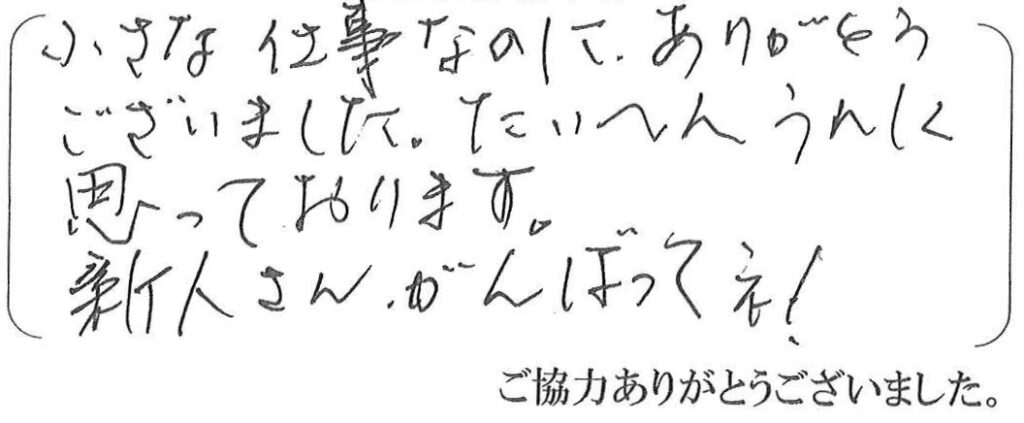 小さな仕事なのに、ありがとう
ございました。たいへんうれしく
思っております。
新人さん、がんばってネ!
ご協力ありがとうございました。